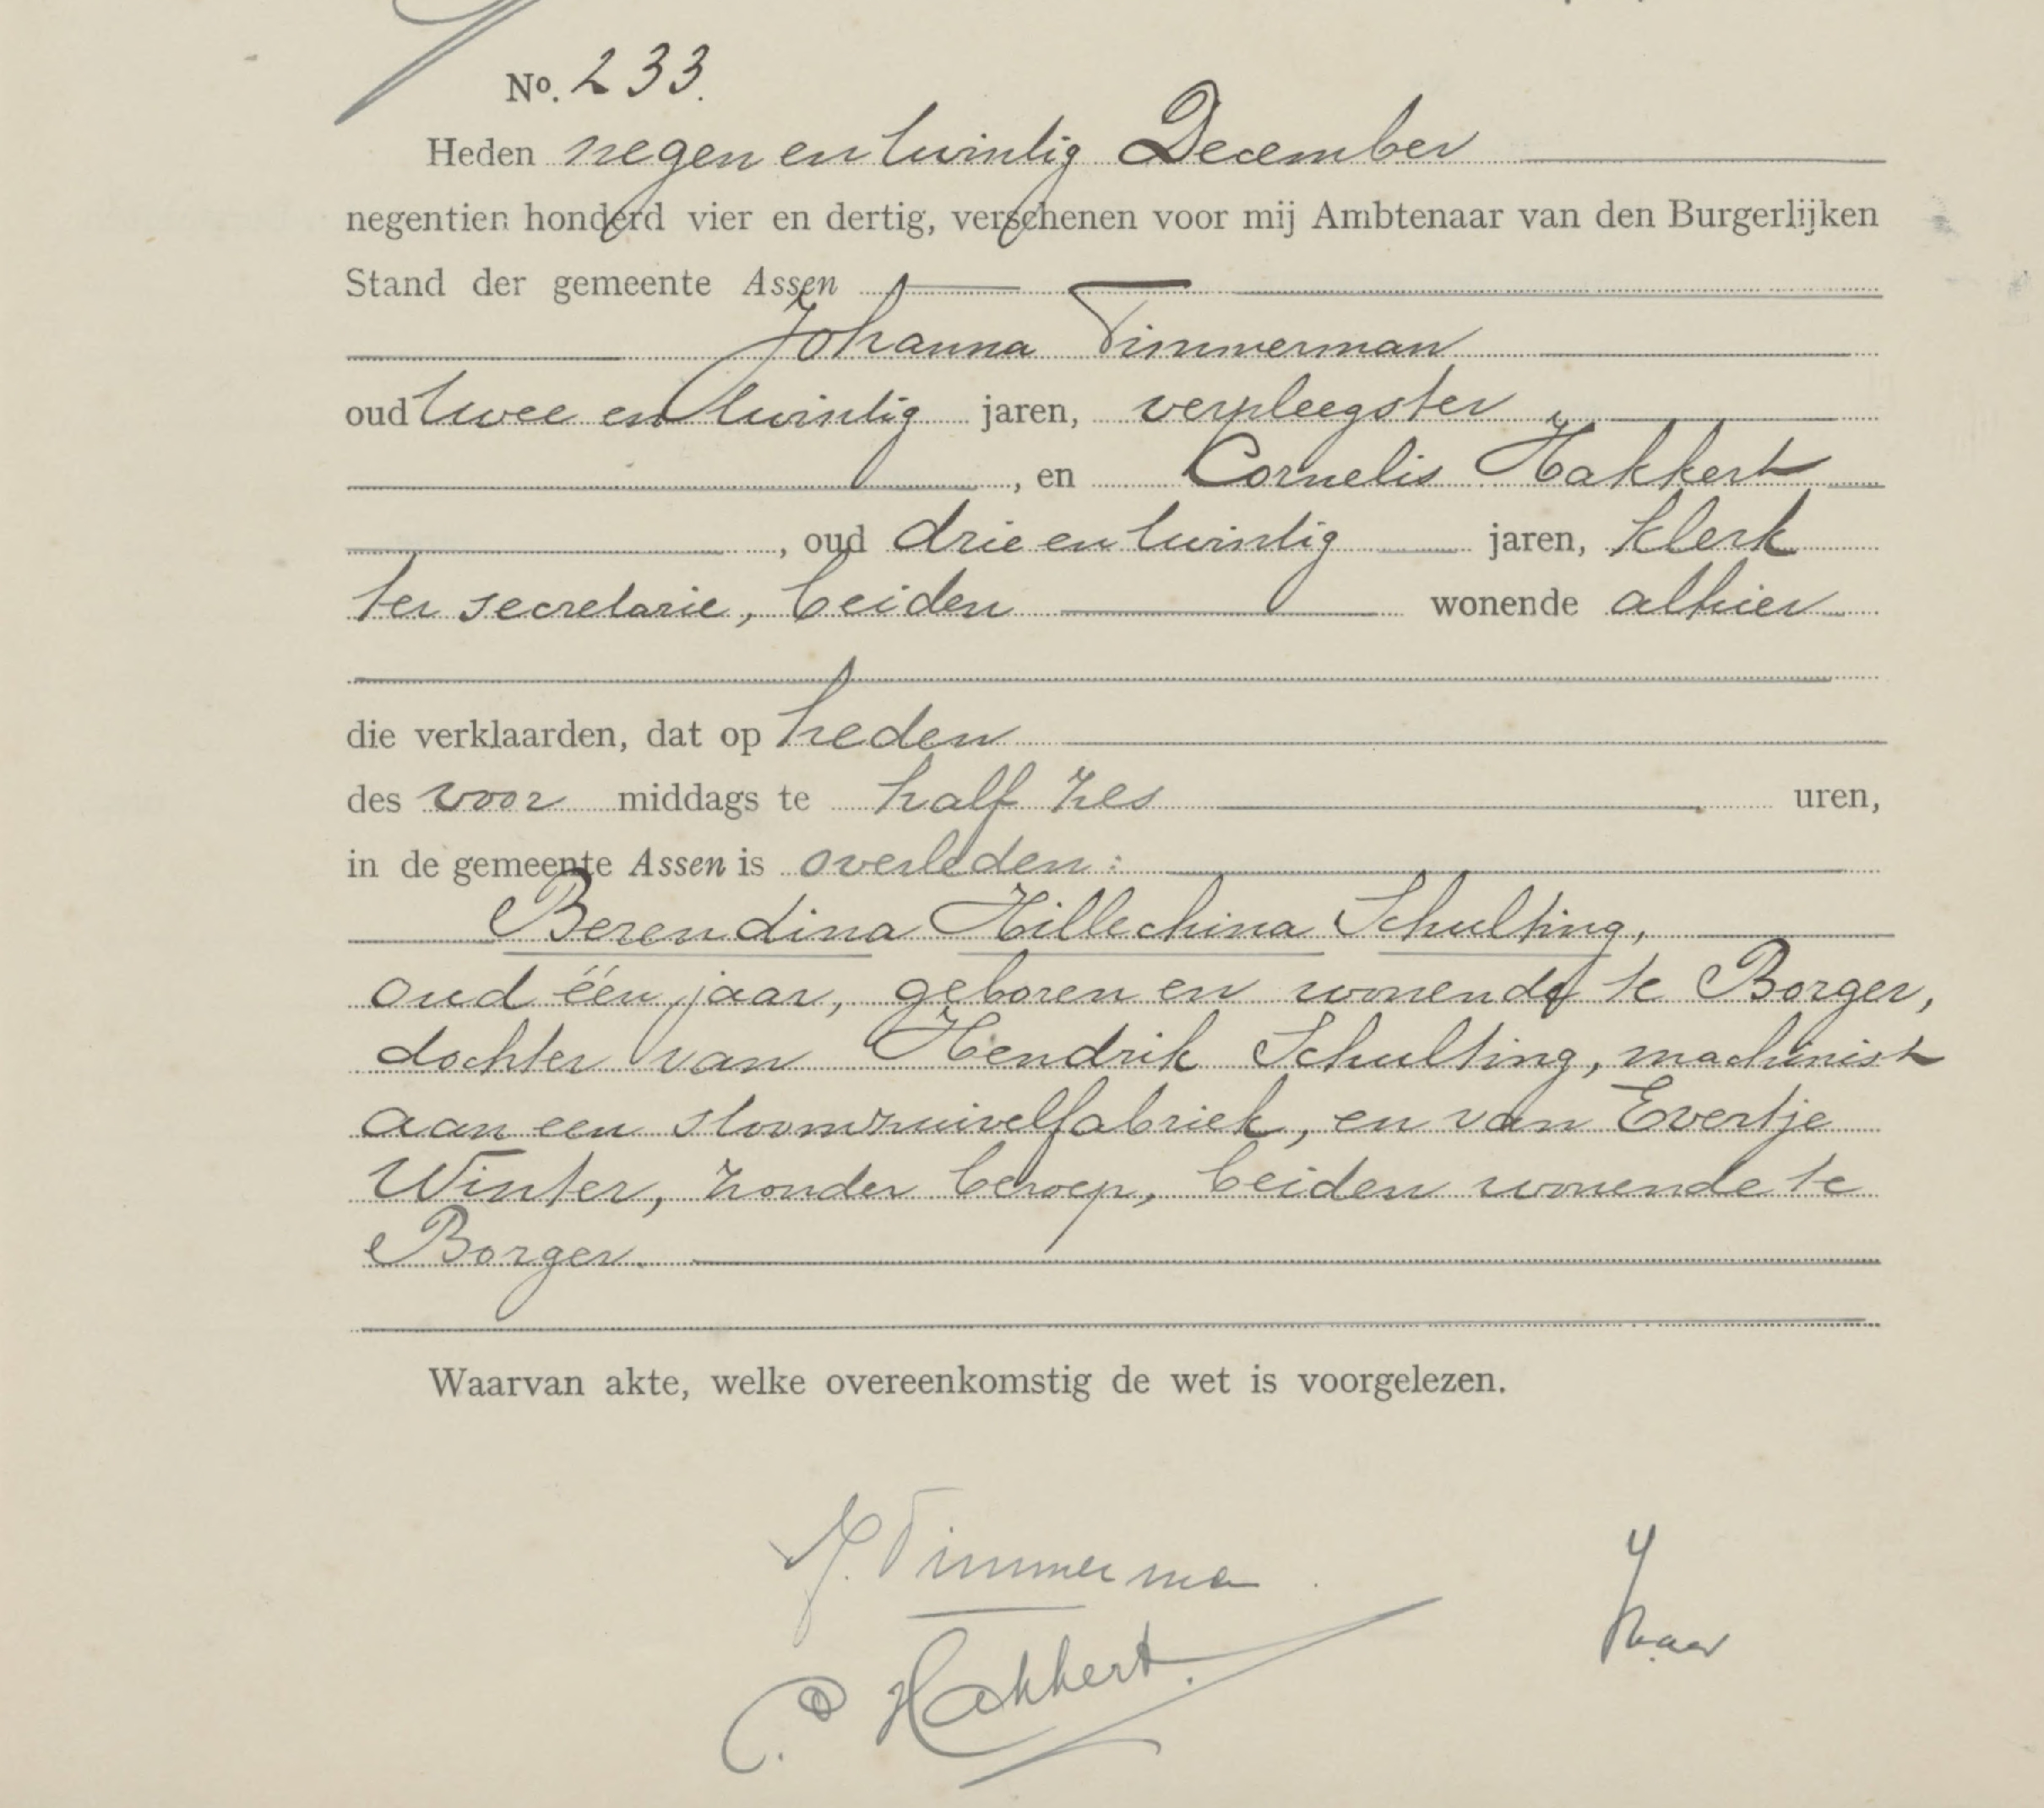 No. 233.
Heden negen en twintig December
negentien honderd vier en dertig, verschenen voor mij Ambtenaar van den Burgerlijken
Stand der gemeente Assen
Johanna Timmerman
oud twee en twintig jaren, verpleegster
, en Cornelis Hakkert
, oud drie en twintig jaren, klerk
ter secretarie, beiden wonende alhier
die verklaarden, dat op heden
des voor middags te half zes uren,
in de gemeente Assen is overleden:
Berendina Hillechina Schulting,
oud één jaar, geboren en wonende te Borger,
dochter van Hendrik Schulting, machinist
aan een stoomzuivelfabriek, en van Evertje
Winter, zonder beroep, beiden wonende te
Borger.
Waarvan akte, welke overeenkomstig de wet is voorgelezen.
J. Timmerman
C. Hakkert.